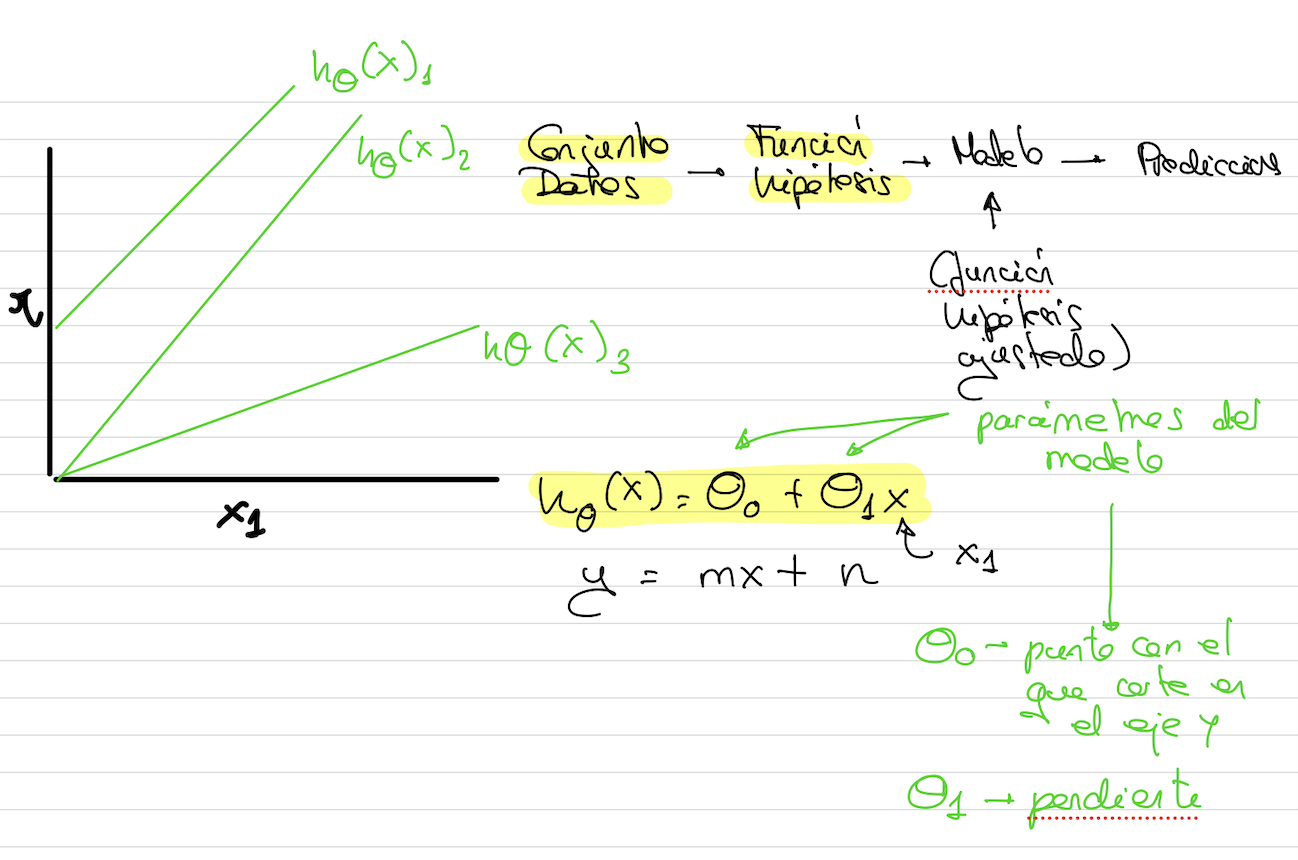 hθ(x)₁
hθ(x)₂
Conjunto Datos → Función hipótesis → Modelo → Prediccions
(función
hipótesis
ajustada)
hθ(x)₃
parámetros del
modelo
hθ(x) = θ₀ + θ₁x
x₁
x₁
y = mx + n
θ₀ → punto con el
que corta en
el eje y
θ₁ → pendiente